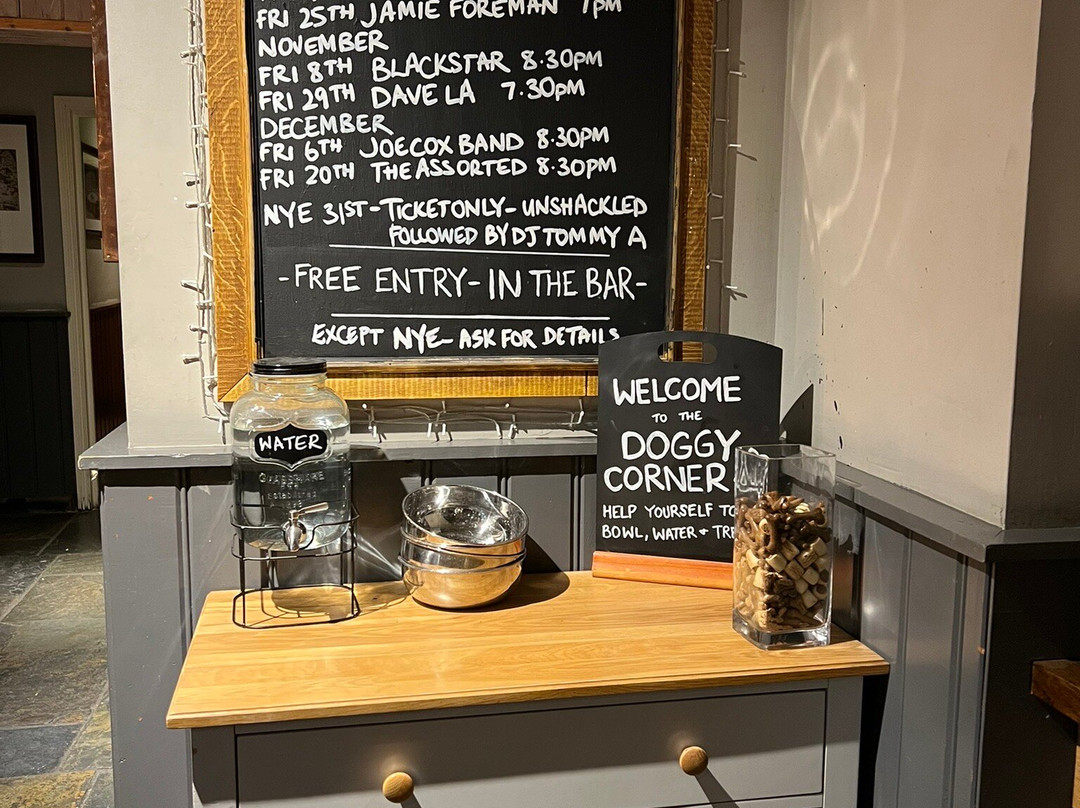 FRI 25TH JAMIE FOREMAN 7PM
NOVEMBER
FRI 8TH BLACKSTAR 8.30PM
FRI 29TH DAVE LA 7.30PM
DECEMBER
FRI 6TH JOE COX BAND 8.30PM
FRI 20TH THE ASSORTED 8.30PM
NYE 31ST - TICKET ONLY - UNSHACKLED
FOLLOWED BY DJ TOMMY A
- FREE ENTRY - IN THE BAR -
EXCEPT NYE - ASK FOR DETAILS
WELCOME
TO THE
DOGGY
CORNER
HELP YOURSELF TO
BOWL, WATER + TRE
WATER